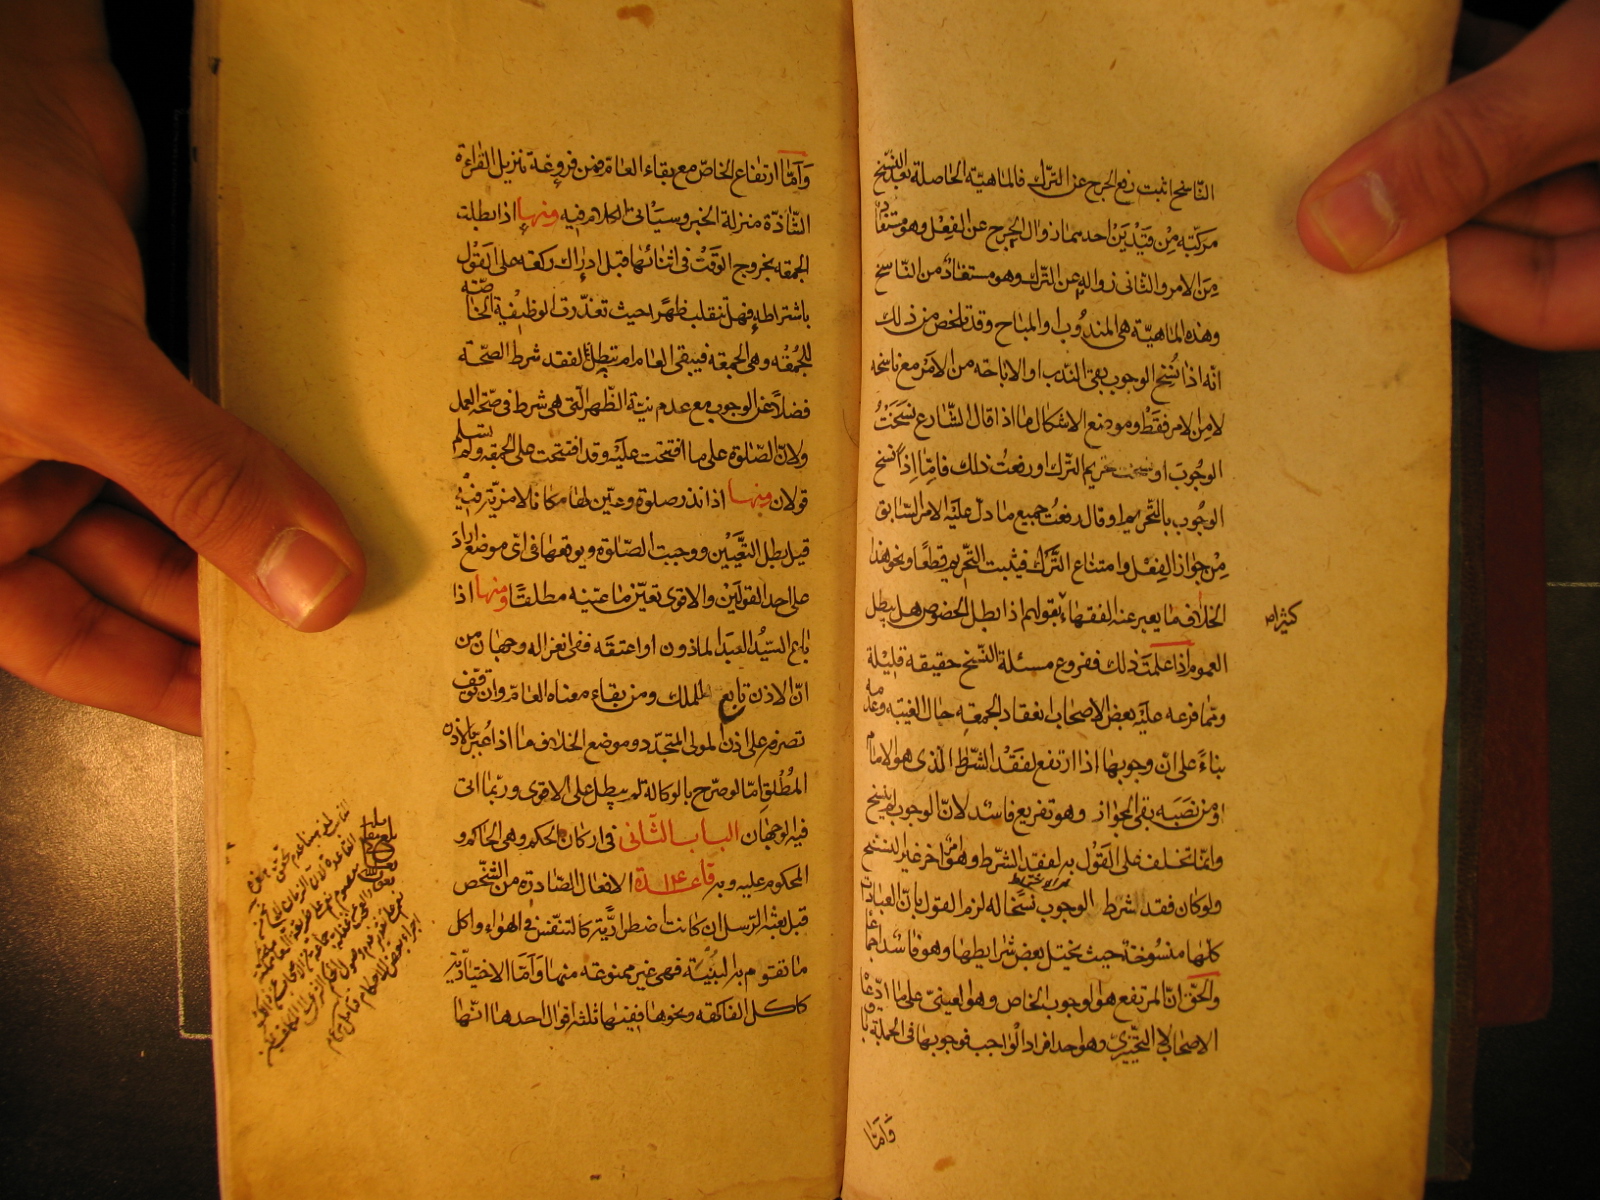 الناسخ اثبت رفع الحرج عن الترك فالماهيّة الحاصلة بعد النسخ
مركبّه مِنْ قيْدَيْن احديهما زوال الحرج عن الفِعْل وهو مستفاد
مِنَ الامر والثاني زواله عن الترك وهو مستفادٌ من النّاسخ
وهذه الماهيّة هي المندُوب او المباح وقد تلخص من ذلك
انّه اذا نُسِخ الوجوب بقى الندب او الاباحة من الامْر مع ناسخه
لا مِن الامر فقَطْ وموضع الاشكال ما اذا قال الشّارع نسَخَتُ
الوجُوبَ او نسخت تحريم الترك او رفعتُ ذلك فامّا اِذا نسخ
الوجُوب بالتّحريم او قال رفعتُ جميع ما دلّ عليْه الامر السّابق
مِنْ جواز الفِعْل وامتناع التَّرْك فيثبت التّحريم قطعًا ونحو هذا
الخلاف ما يعبر عنه الفقهاء بقولهم اذا بطل الخصوص هل يبطل
العموم اذا علمتَ ذلك ففروع مسئلة النّسخ حقيقة قليلة
وممّا فرعه عليْه بعض الاصحاب انعقاد الجمعة حال الغيبة وعدمه
بناءً على انّ وجوبها اذا ارتفع لفقْد الشّرط الّذى هو الامام
او من نصَبَه بقى الجواز وهو تفريع فاسد لانّ الوجوب لم ينسخ
وانّما تخلف على القَوْل به لفقد الشّرط وهو امر اخر غير النسخ
ولو كان فقد شرط الوجوب نسخًا له لزم القول بانّ العبادات
كلها منسوخة حيث يختل بعض شرايطها وهو فاسد اجماعا
والحَقّ انّ المرتفع هو الوجوب الخاص وهو العينىّ على ما ادّعاه
الاصحاب لا التّخييريّ وهو احد افراد الواجب فوجوبها فى الجملة باق
وَامّا
وَامّا ارتفاع الخاصّ مع بقاء العامّ فمن فروعه تنزيل القراءة
الشّاذّة منزلة الخبر وسيَأتى الكلام فيه ومنها اذا بطلت
الجمعة بخروج الوَقْت فى اثنائها قبل ادراك ركعة على القَوْل
باشتراطه فهل تنقلب ظهْرًا حيث تعذّرت الوظيفة الخاصّة
للجُمعَة وهى الجمعة فيبقى العام ام تبطل لفقد شرط الصّحّة
فضلاً عن الوجوب مع عدم نيّة الظّهر الّتى هى شرط فى صحّة العمل
ولانّ الصّلوة على ما افتتحت عليْه وقد افتتحت على الجمعة ولم تسلم
قولان ومنها اذا نذر صلوة وعيّن لها مكانا لا مزيّة فيه
قيل يبطل التّعيين ووجبت الصّلوة ويوقعها فى اىّ موضع اراد
على احد القولَيْن والاقوى تعيّن ما عيّنه مطلقًا ومنها اذا
باع السّيّد العبد الماذون او اعتقه ففى انعزاله وجهان من
انّ الاذن تابع للملك ومن بقاء معناه العامّ وان توقّف
تصرّفه على اذن المولى المتجدّد وموضع الخلاف ما اذا عبّر بالاذن
المُطْلق امّا لو صرّح بالوكالة لم يبطل على الاقوى وربّما اتى
فيه الوجهان الباب الثّانى فى اركان الحكم وهى الحاكم و
المحكوم عليه وبه قاعدة الافعال الصّادرة من الشّخص
قبل بعثة الرّسل ان كانت اضطراريّة كالتنفّس فى الهوَاء واكل
ما تقوم به البنْيَة فهى غير ممنوعة منها وَامّا الاختياريّة
كاكل الفاكهة ونحوها ففيها ثلثة اقوال احدها انّها